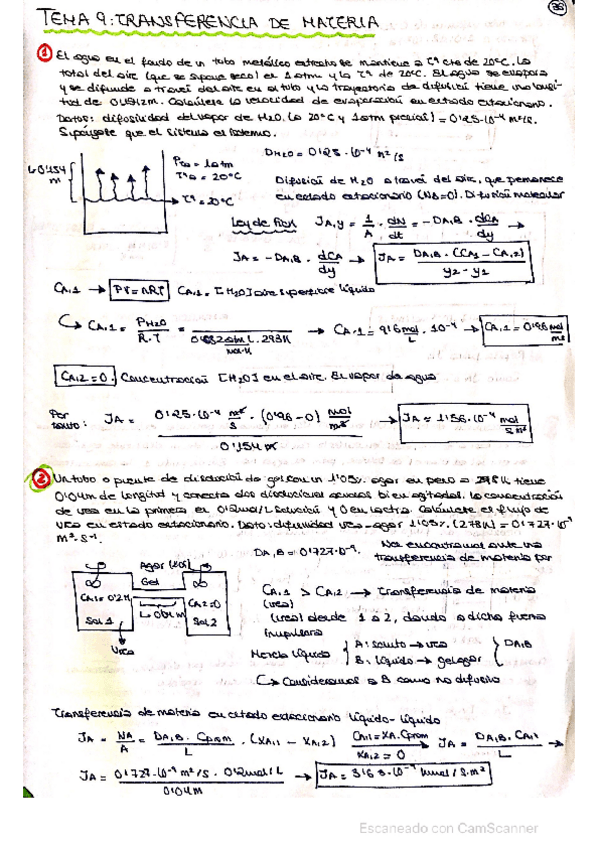 TEMA 9: TRANSFERENCIA DE MATERIA
① El agua en el fondo de un tubo metálico estrecho se mantiene a Tª cte de 20ºC. La
total del aire (que se supone seco) es 1 atm y la Tª de 20ºC. El agua se evapora
y se difunde a través del aire en el tubo y la trayectoria de difusión tiene una longi-
tud de Calcúlese la velocidad de evaporación en estado estacionario.
Datos: difusividad del vapor de H2O (a 20ºC y 1 atm presión) = 0'25·10⁻⁴ m²/s.
Supóngase que el sistema es isotermo.
DH2O = 0'25·10⁻⁴ m²/s
= 1 atm
Tª = 20ºC
Tª = 20ºC
Difusión de H2O a través del aire, que permanece
en estado estacionario (NB=0). Difusión molecular
Ley de Fick JA,y = 1/A · dN/dt = -DA,B · dCA/dy →
JA = -DA,B · dCA/dy → JA = DA,B · (CA1 - CA,2) / y2 - y1
CA,1 → PV = nRT CA,1 = [H2O] aire superficie líquido
↳ CA,1 = PH2O / R.T = / 0'082 atm L · 293K / mol·K → CA,1 = 9'6 mol/L · 10⁻⁴ → CA,1 = 0'96 mol/m³
CA,2 = 0. Concentración [H2O] en el aire. El vapor de agua
Por tanto: JA = 0'25·10⁻⁴ m²/s · (0'96 - 0) mol/m³ / 0'154 m → JA = 1'56·10⁻⁴ mol/s m²
② Un tubo o puente de disolución de gel con un 1'05% agar en peso a 278K tiene
0'04m de longitud y conecta dos disoluciones acuosas bien agitadas. La concentración
de urea en la primera es 0'2mol/L solución y 0 en la otra. Calcúlese el flujo de
urea en estado estacionario. Dato: difusividad urea-agar 1'05% (278K) = 0'727·10⁻⁹
m²·s⁻¹.
DA,B = 0'727·10⁻⁹.
Nos encontramos ante una
transferencia de materia por
Agar
Gel
CA1 = 0'2M
Sol 1
CA2=0
Sol 2
L=0'04m
Urea
CA,1 > CA,2 → Transferencia de materia
(urea)
(urea) desde 1 a 2, dando a dicha fuerza
impulsora
Mezcla líquida { A: soluto → urea
B: líquido → gel agar } DA,B
↳ Consideramos a B como no difusivo
Transferencia de materia en estado estacionario líquido-líquido
JA = NA/A = DA,B · Cprom / L · (XA,1 - XA,2) CA,1 = XA · Cprom / XA,2 = 0 → JA = DA,B · CA,1 / L →
JA = 0'727·10⁻⁹ m²/s · 0'2mol/L / 0'04m → JA = 3'63·10⁻⁹ kmol/s·m²
Escaneado con CamScanner